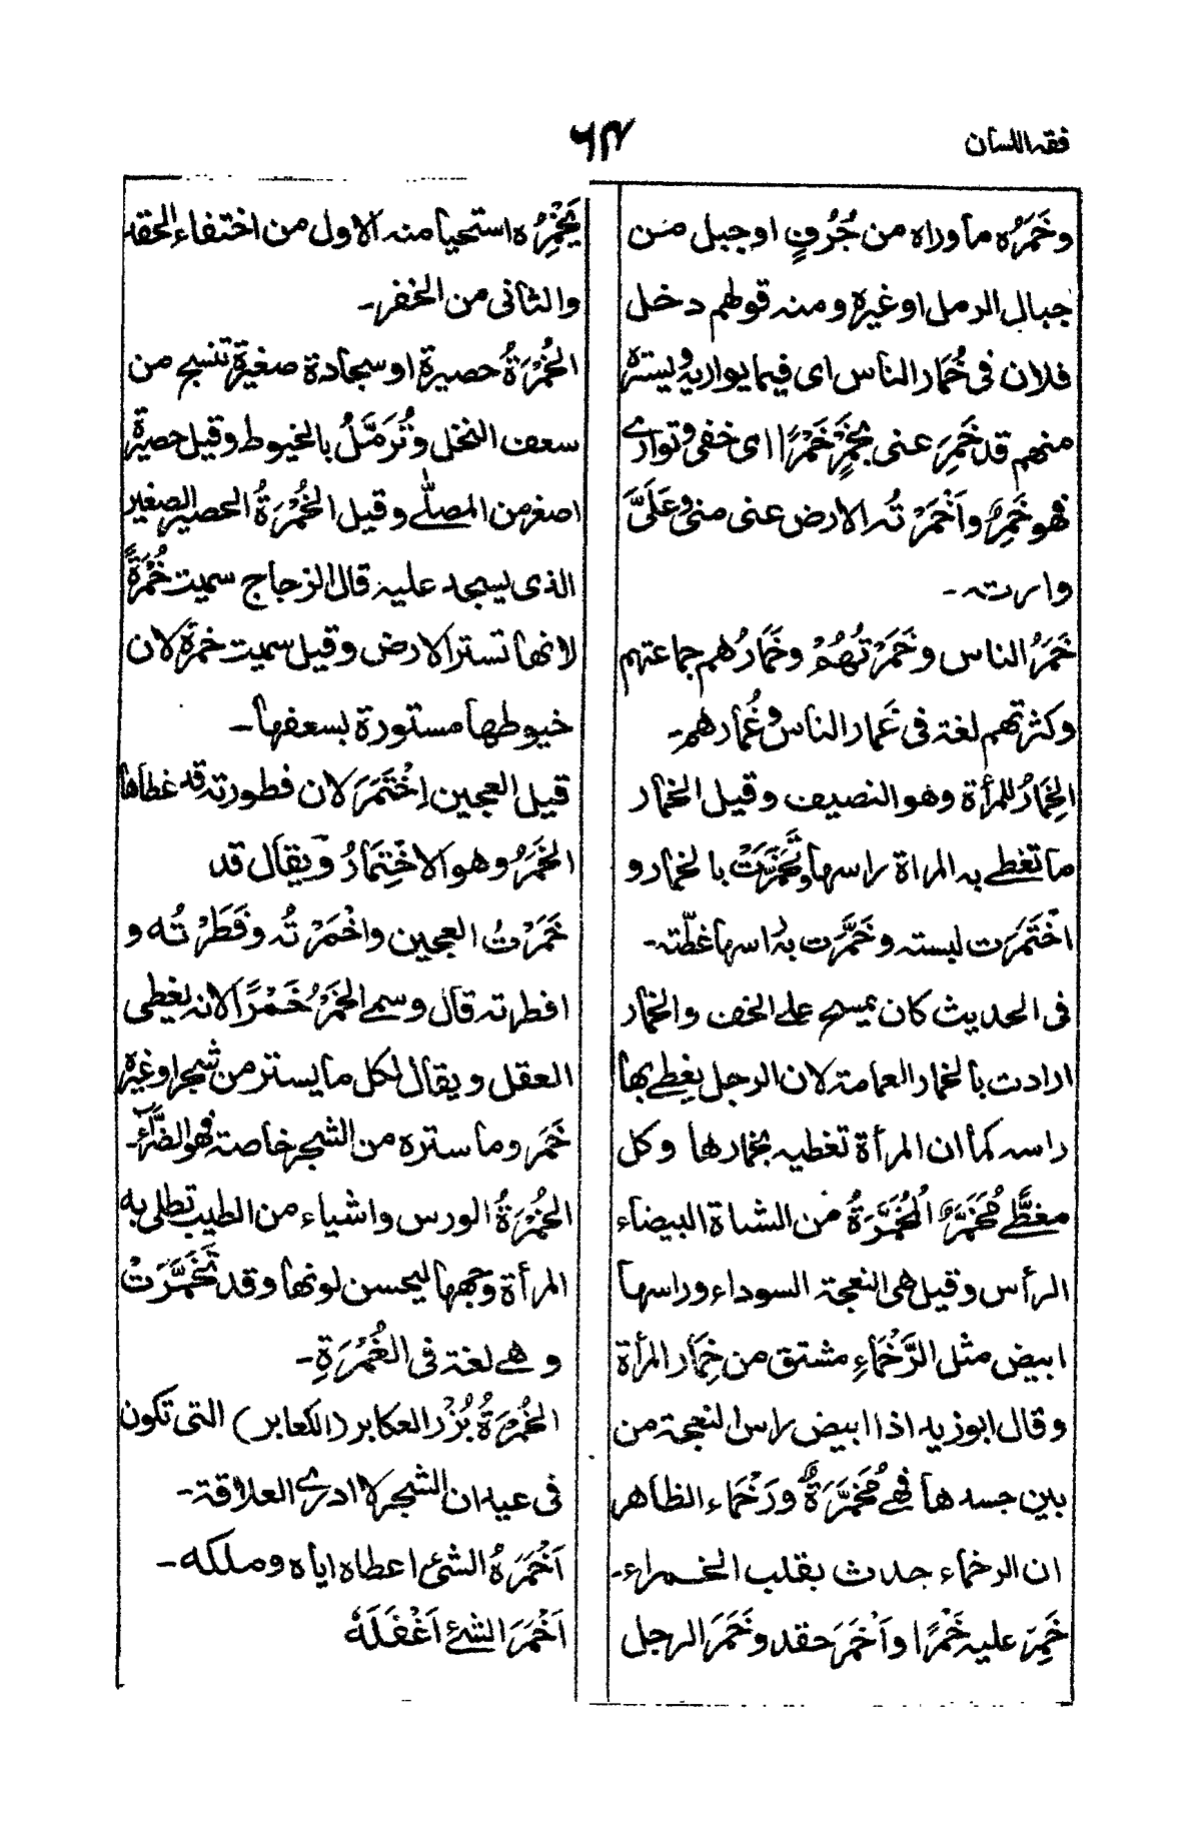 فقه اللسان
٦١٧
وخَمَرُه ما وراه من جُرُفٍ او جبل من
جبال الرمل او غيره ومنه قولهم دخل
فلان فى خُمار الناس اى فيما يواريه ويستره
منهم قد خَمِرَ عنى يخمَرُ خَمَرًا اى خفى وتوارى
فهو خَمِرٌ واَخْمَرَتْه الارض عنى منى وعَلَىَّ
وارته -
خَمَرُ الناس وخَمَرْتُهُمْ وخَمَارُهم جماعتهم
وكثرتهم لغة فى غَمار الناس وغُمارهم -
الخِمَارُ للمرأة وهو النصيف وقيل الخمار
ما تغطى به المراة راسها وتَخَمَّرَتْ بالخمار و
اخْتَمَرَت لبسته وخَمَّرَت به راسها غطّته -
فى الحديث كان يمسح على الخف والخمار
ارادت بالخمار العمامة لان الرجل يغطى بها
راسه كما ان المرأة تغطيه بخمارها وكل
مغطًّى مُخَمَّرٌ الْمُخَمَّرَةُ من الشاة البيضاء
الرأس وقيل هى النعجة السوداء وراسها
ابيض مثل الرَّخْماءِ مشتق من خِمَار المرأة
وقال ابو زيد اذا ابيض راس النعجة من
بين جسدها فهى مُخَمَّرَةٌ ورَخْماء الظاهر
ان الرخماء حدث بقلب الخمراء -
خَمِرَ عليه خَمَرًا واَخْمَرَ حقد وخَمَرَ الرجل
يَخْمِرُه استحيا منه الاول من اختفاء الحقد
والثانى من الخفر -
الخُمْرَةُ حصيرة او سجادة صغيرة تنسج من
سعف النخل وتُرَمَّلُ بالخيوط وقيل حصيرة
اصغر من المصلّى وقيل الخُمْرَةُ الحصير الصغير
الذى يسجد عليه قال الزجاج سميت خُمْرَةً
لانها تستر الارض وقيل سميت خمرة لان
خيوطها مستورة بسعفها -
قيل العجين اِخْتَمَرَ لان فطورته قد غطاها
الخَمَرُ وهو الاخْتِمَارُ ويقال قد
خَمَرْتُ العجين واخْمَرْتُه وفَطَرْتُه و
افطرته قال وسمى الخَمْرُ خَمْرًا لانه يغطى
العقل ويقال لكل ما يستر من شجر او غيره
خَمَر وما ستره من الشجر خاصة فهو الضَّرَاءُ -
الخُمْرَةُ الورس واشياء من الطيب تطلى به
المرأة وجهها ليحسن لونها وقد تَخَمَّرَتْ
وهى لغة فى الغُمْرَةِ -
الخُمْرَةُ بُزْر العكابر (الكعابر) التى تكون
فى عيدان الشجر لا ادرى العلاقة -
اَخْمَرَهُ الشئ اعطاه اياه وملكه -
اَخْمَرَ الشئ اَغْفَلَهٗ